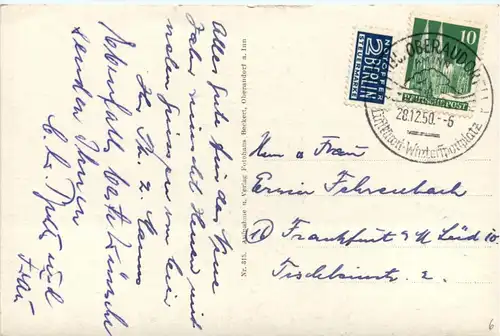 Alles Gute für das Neue
Jahr wünscht Ihnen mit
vielen Grüssen von hier
Ihr
Ebenfalls beste Wünsche
senden Ihnen
und
Frau
Nr. 315. Aufnahme u. Verlag Fotohaus Beckert, Oberaudorf a. Inn
NOTOPFER
2 BERLIN
STEUERMARKE
10
DEUTSCHE POST
OBERAUDORF
28.12.50.-6
Wintersportplatz
Herrn u. Frau
Erwin Fehrenbach
Frankfurt a/M Süd 10
Tischbeinstr. 2.
6